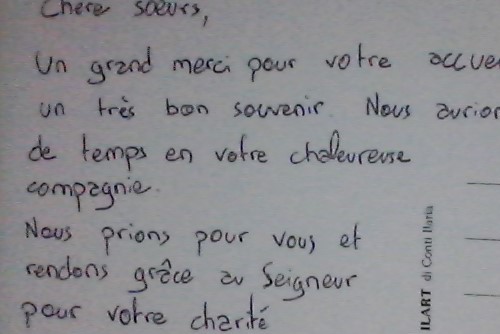 Chère sœurs,
Un grand merci pour votre accue
un très bon souvenir. Nous aurion
de temps en votre chaleureuse
compagnie.
Nous prions pour vous et
rendons grâce au Seigneur
pour votre charité
ILART di Conti Ilaria